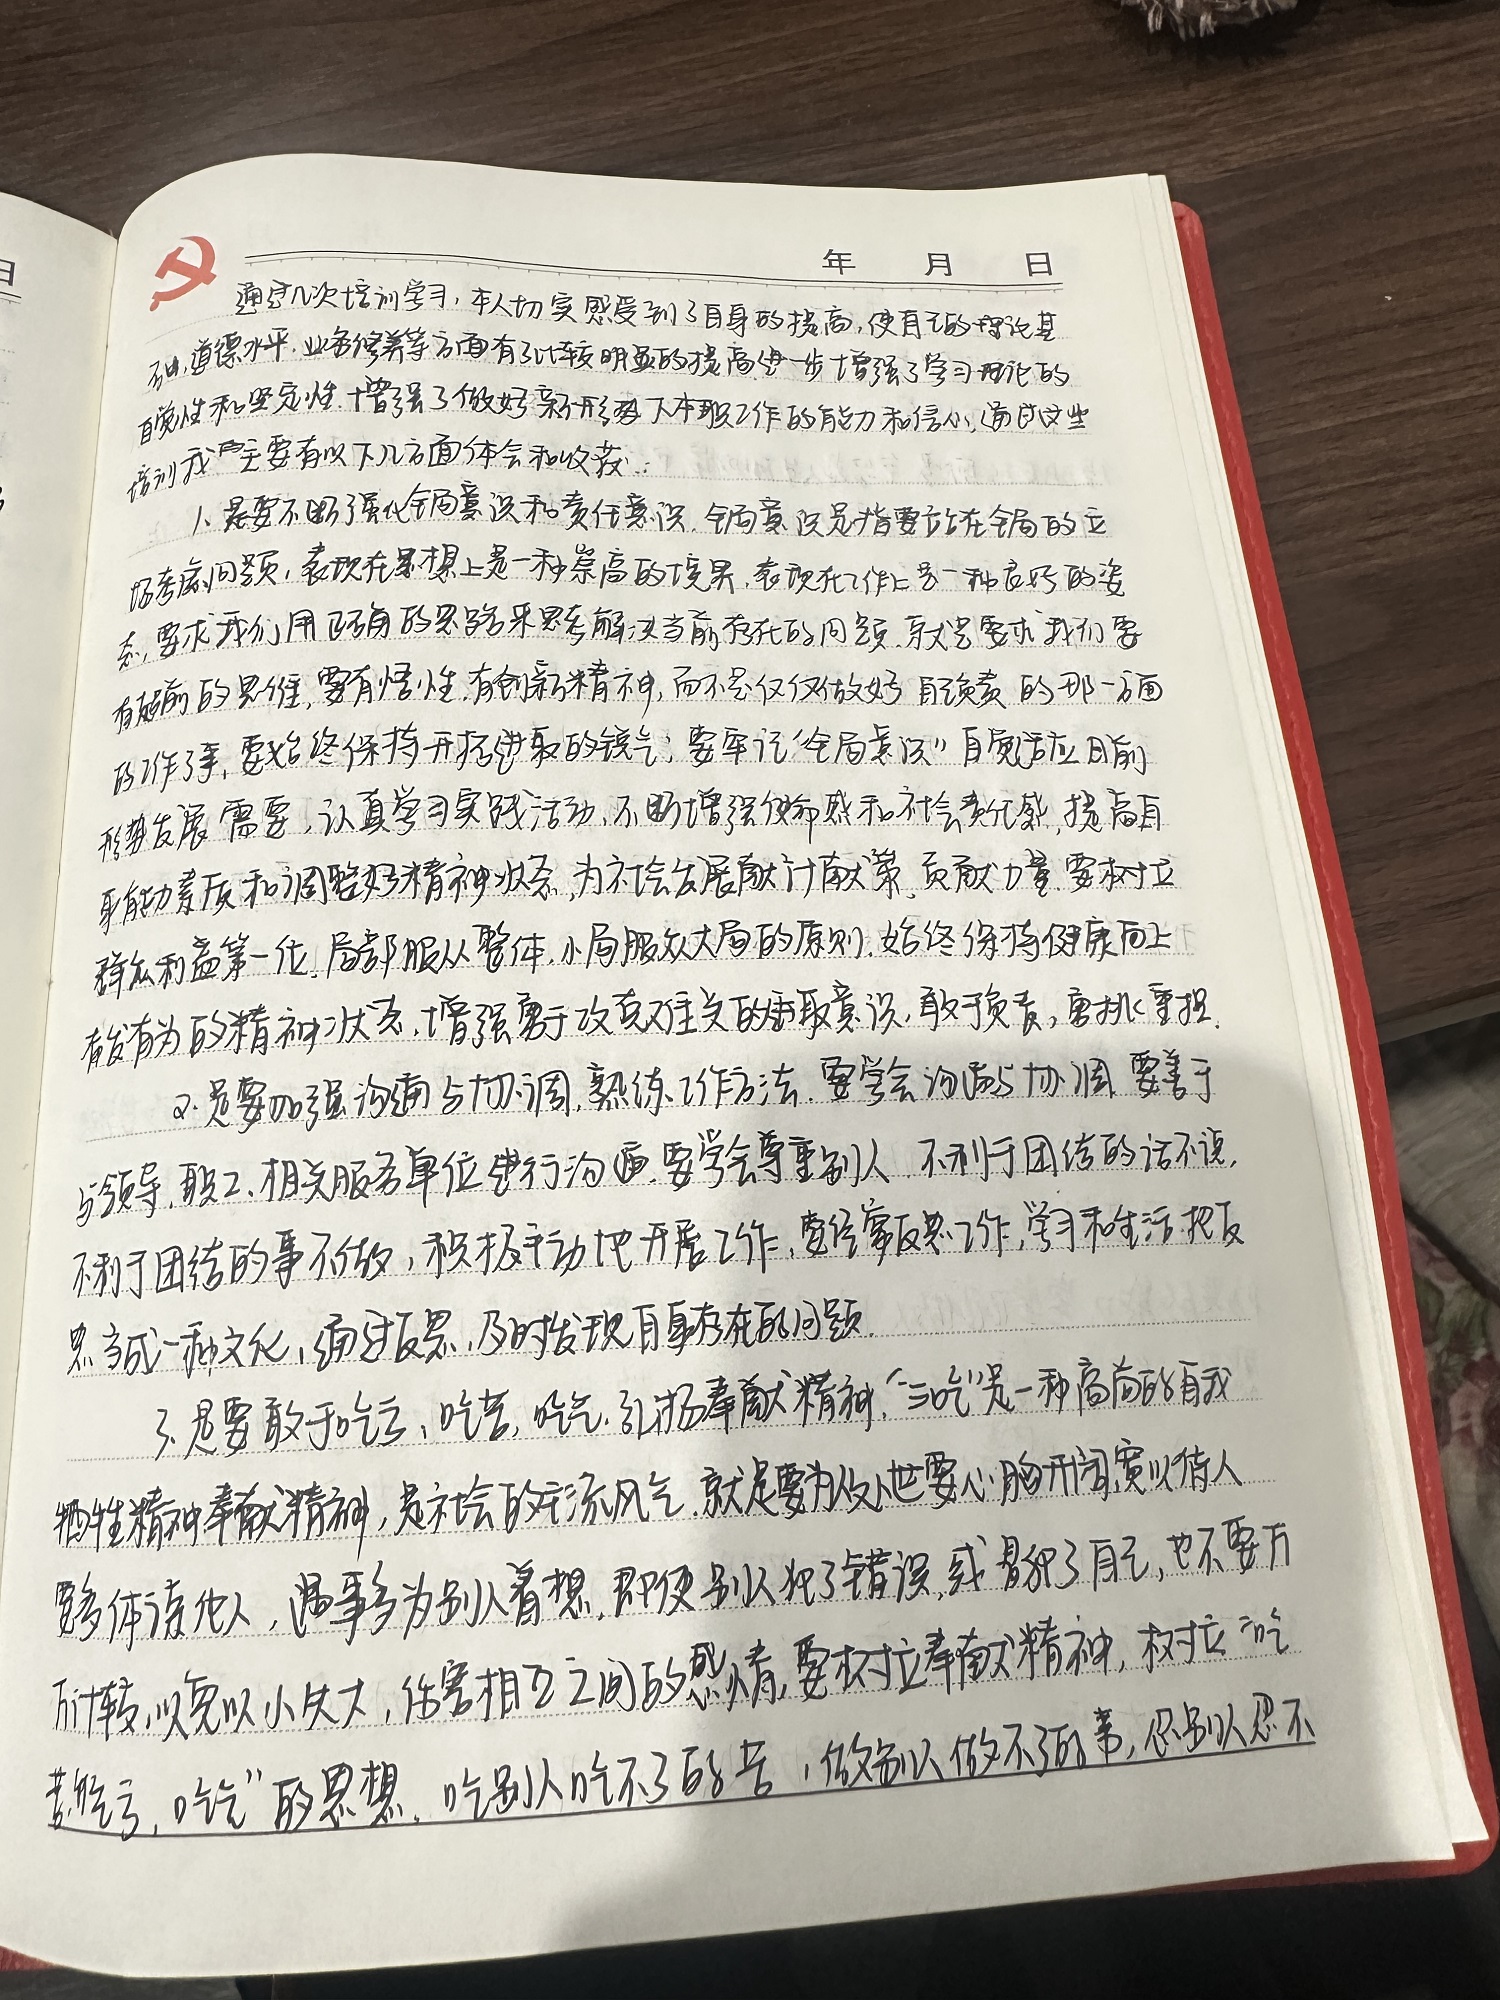 年 月 日
通过几次培训学习,本人切实感受到了自身的提高,使自己的理论基
础,道德水平.业务修养等方面有了比较明显的提高,进一步增强了学习理论的
自觉性和坚定性.增强了做好新形势下本职工作的能力和信心,通过这些
培训我主要有以下几方面体会和收获:
1、是要不断了强化全局意识和责任意识.全局意识是指要站在全局的立
场考虑问题,表现在思想上是一种崇高的境界,表现在工作上是一种良好的姿
态,要求我们用正确的思路来思考解决当前存在的问题.就是要求我们要
有超前的思维,要有悟性.有创新精神,而不是仅仅做好自己负责的那一方面
的工作了事,要始终保持开拓进取的锐气;要牢记“全局意识”自觉适应目前
形势发展需要,认真学习实践活动,不断增强使命感和社会责任感,提高自
身能力素质和调整好精神状态,为社会发展献计献策.贡献力量.要树立
群众利益第一位.局部服从整体,小局服众大局的原则.始终保持健康向上
有发有为的精神状态,增强勇于攻克难关的进取意识,敢于负责,勇挑重担.
2.是要加强沟通与协调,熟练工作方法.要学会沟通与协调,要善于
与领导,职工、相关服务单位进行沟通.要学会尊重别人 不利于团结的话不说,
不利于团结的事不做,积极主动地开展工作,要经常反思工作,学习和生活.把反
思当成一种文化,通过反思,及时发现自身存在的问题.
3.是要敢于吃亏、吃苦,吃气.弘扬奉献精神,“三吃”是一种高尚的自我
牺牲精神奉献精神,是社会的主流风气.就是要为人处世要心胸开阔,宽以待人
要多体谅他人,遇事多为别人着想,即使别人犯了错误,或冒犯了自己,也不要斤
斤计较,以免以小失大,伤害相互之间的感情,要树立奉献精神,树立“吃
苦,吃亏,吃气”的思想.吃别人吃不了的苦,做别人做不了的事,忍别人忍不